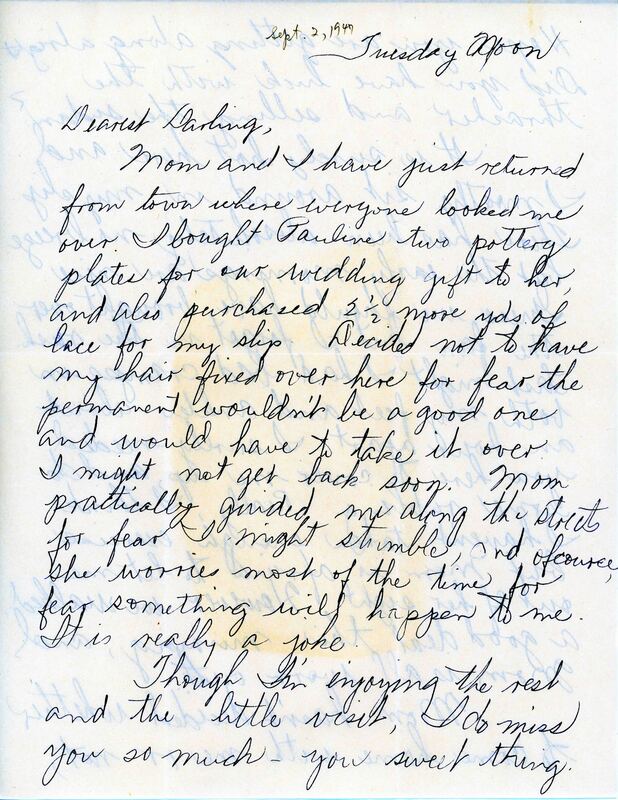 Sept. 2, 1947
Tuesday Noon
Dearest Darling,
Mom and I have just returned
from town where everyone looked me
over. I bought Pauline two pottery
plates for our wedding gift to her,
and also purchased 2 1/2 more yds. of
lace for my slip. Decided not to have
my hair fixed over here for fear the
permanent wouldn't be a good one
and would have to take it over.
I might not get back soon. Mom
practically guided me along the streets
for fear I might stumble, and ofcourse,
she worries most of the time for
fear something will happen to me.
It is really a joke.
Though I'm enjoying the rest
and the little visit, I do miss
you so much – you sweet thing.